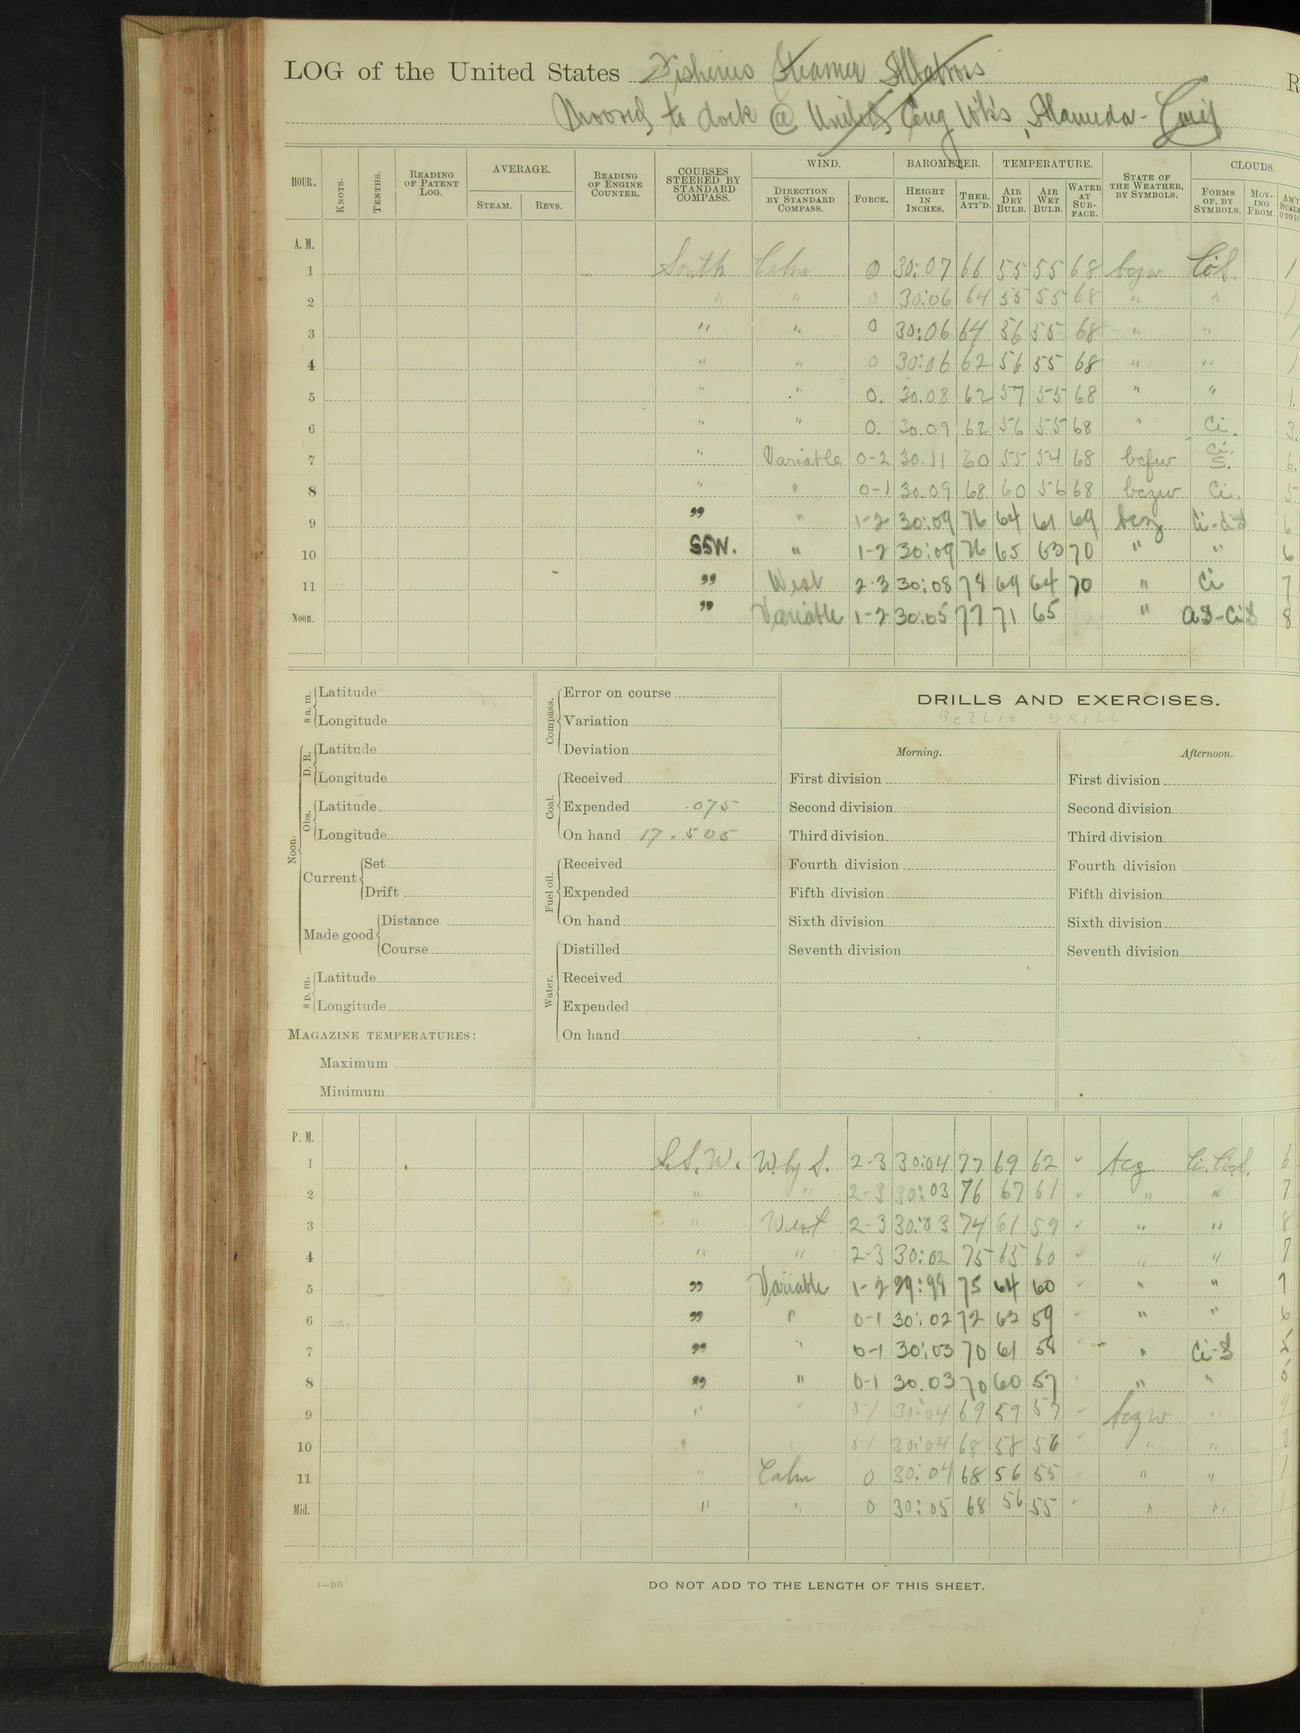 LOG of the United States Fisheries Steamer Albatross R
Moored to dock @ United Eng Wk's, Alameda - Calif
HOUR. KNOTS. TENTHS. READING OF PATENT LOG. AVERAGE. STEAM. REVS. READING OF ENGINE COUNTER. COURSES STEERED BY STANDARD COMPASS. WIND. DIRECTION BY STANDARD COMPASS. FORCE. BAROMETER. HEIGHT IN INCHES. THER. ATT'D. TEMPERATURE. AIR DRY BULB. AIR WET BULB. WATER AT SURFACE. STATE OF THE WEATHER, BY SYMBOLS. CLOUDS. FORMS OF, BY SYMBOLS. MOVING FROM. AM'T SCALE 0 TO 10
A. M.
1 South Calm 0 30:07 66 55 55 68 bczw 1
2 " " 0 30:06 64 55 55 68 " " 1
3 " " 0 30:06 64 56 55 68 " " 1
4 " " 0 30:06 62 56 55 68 " " 1
5 " " 0. 30.08 62 57 55 68 " " 1.
6 " " 0. 30.09 62 56 55 68 " Ci. 3.
7 " Variable 0-2 30.11 60 55 54 68 bcfw Ci. S. 6.
8 " " 0-1 30.09 68 60 56 68 bczw Ci. 5.
9 " " 1-2 30:09 76 64 61 69 bcz Ci-CiS 6
10 SSW. " 1-2 30:09 76 65 63 70 " " 6
11 " West 2-3 30:08 78 69 64 70 " Ci 7
Noon. " Variable 1-2 30:05 77 71 65 " AS-CiS 8
8 a. m. Latitude
Longitude
Noon. D. R. Latitude
Longitude
Obs. Latitude
Longitude
Current Set
Drift
Made good Distance
Course
8 p. m. Latitude
Longitude
MAGAZINE TEMPERATURES:
Maximum
Minimum
Compass. Error on course
Variation
Deviation
Coal. Received
Expended .075
On hand 17.505
Fuel oil. Received
Expended
On hand
Water. Distilled
Received
Expended
On hand
DRILLS AND EXERCISES.
DRILL
Morning.
First division
Second division
Third division
Fourth division
Fifth division
Sixth division
Seventh division
Afternoon.
First division
Second division
Third division
Fourth division
Fifth division
Sixth division
Seventh division
P. M.
1 S.S.W. W. by S. 2-3 30:04 77 69 62 ✓ bcz 6
2 " " 2-3 30:03 76 67 61 ✓ " " 7
3 " West 2-3 30:03 74 61 59 ✓ " " 8
4 " " 2-3 30:02 75 65 60 ✓ " " 7
5 " Variable 1-2 29:99 75 64 60 ✓ " " 7
6 " " 0-1 30:02 72 62 59 ✓ " " 6
7 " " 0-1 30:03 70 61 58 " Ci-S 5
8 " " 0-1 30.03 70 60 57 " " 5
9 " " 0-1 30:04 69 59 57 ✓ bczw "
10 " " 0-1 30:04 68 58 56 ✓ " " 3
11 " Calm 0 30:04 68 56 55 " " 1
Mid. " " 0 30:05 68 56 55 " " 1
4—265
DO NOT ADD TO THE LENGTH OF THIS SHEET.